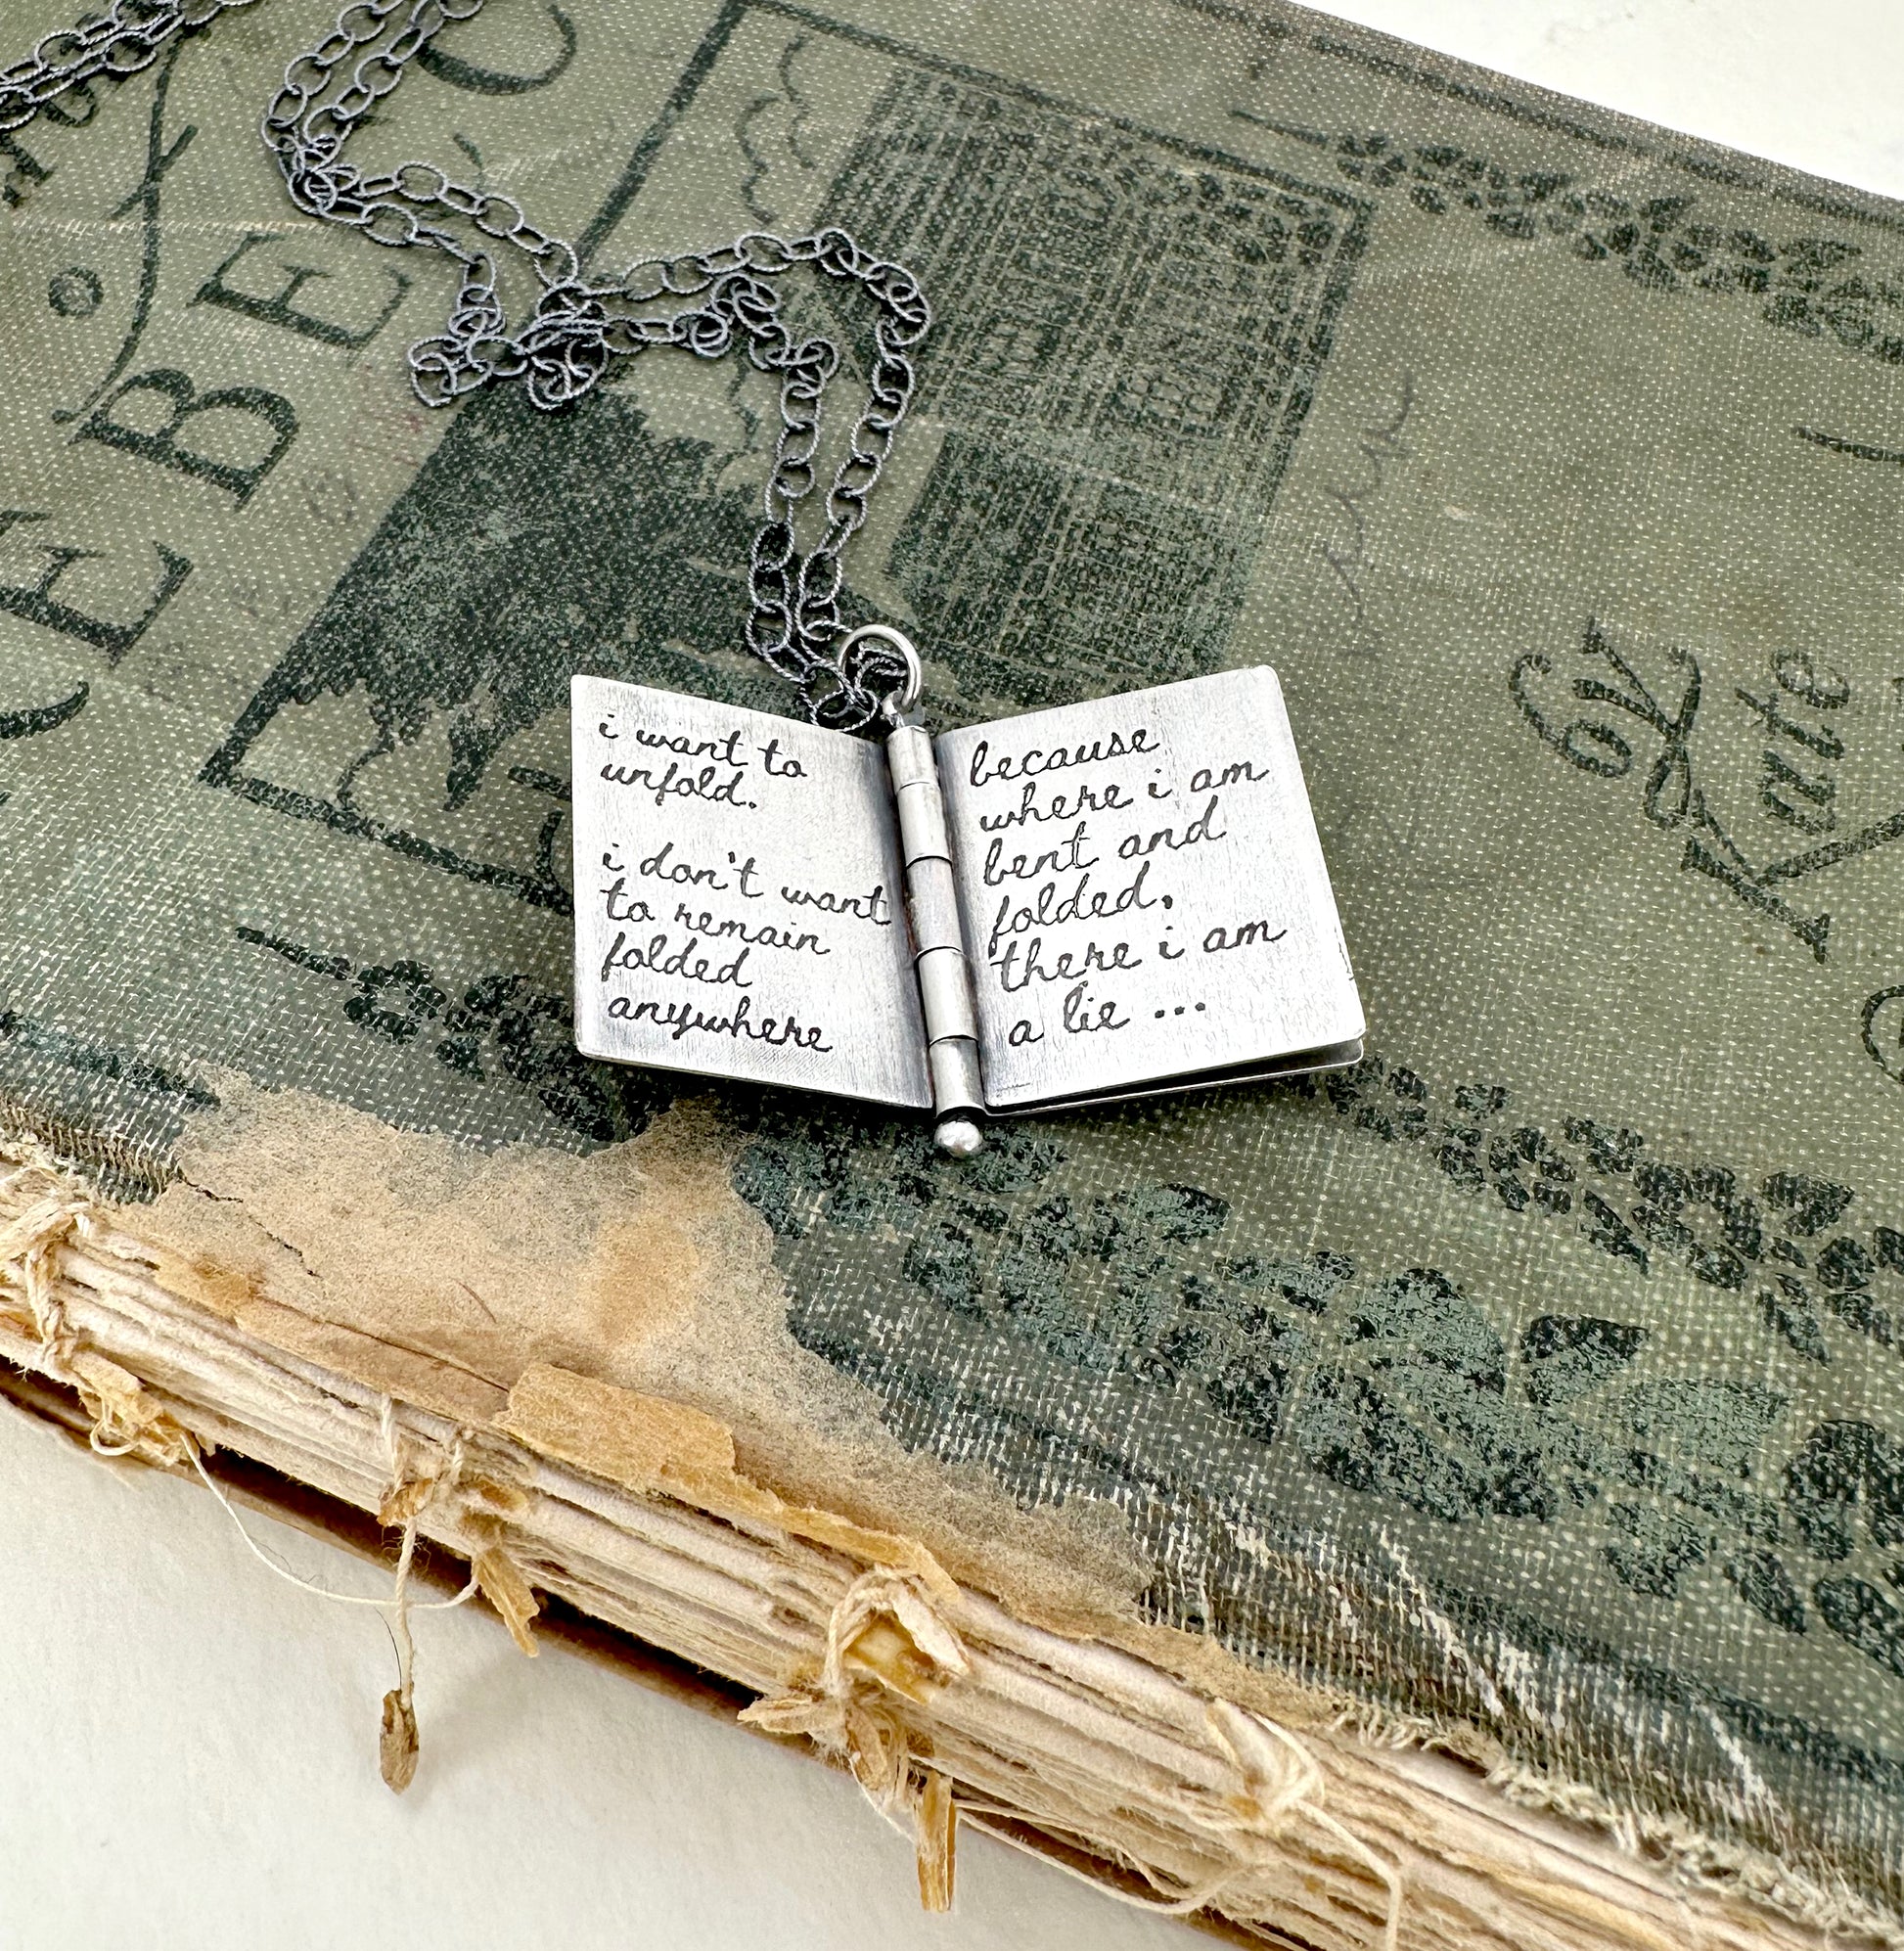 i want to
unfold.
i don't want
to remain
folded
anywhere
because
where i am
bent and
folded,
there i am
a lie ...
EBEC
by
Kate